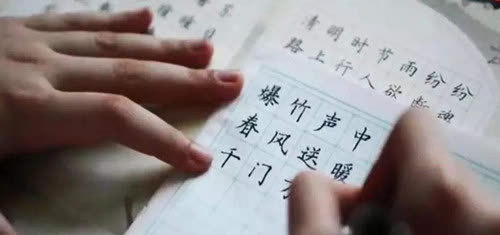 清明时节雨纷纷
路上行人欲断魂
爆竹声中
春风送暖
千门